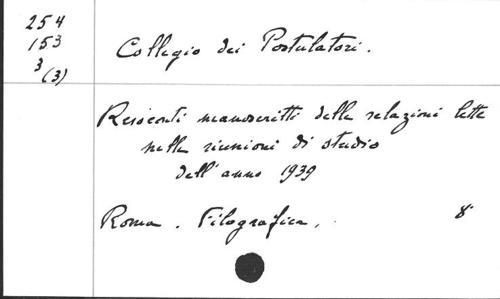 254
153
3
(3)
Collegio dei Postulatori.
Resoconti manoscritti delle relazioni lette
nelle riunioni di studio
dell'anno 1939
Roma. Tilografica. 8°